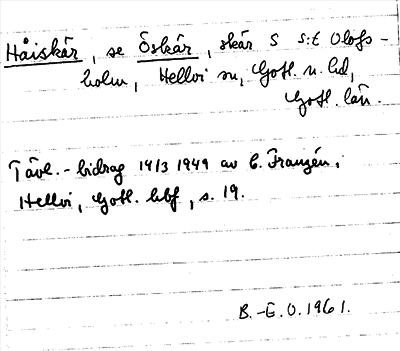 Håiskär, se Öskär, skär S s:t Olofs-
holm, Hellvi sn, Gotl. n. hd,
Gotl. län.
Tävl.-bidrag 14/3 1949 av E. Franzén,
Hellvi, Gotl. hbf, s. 19.
B.-E. O. 1961.